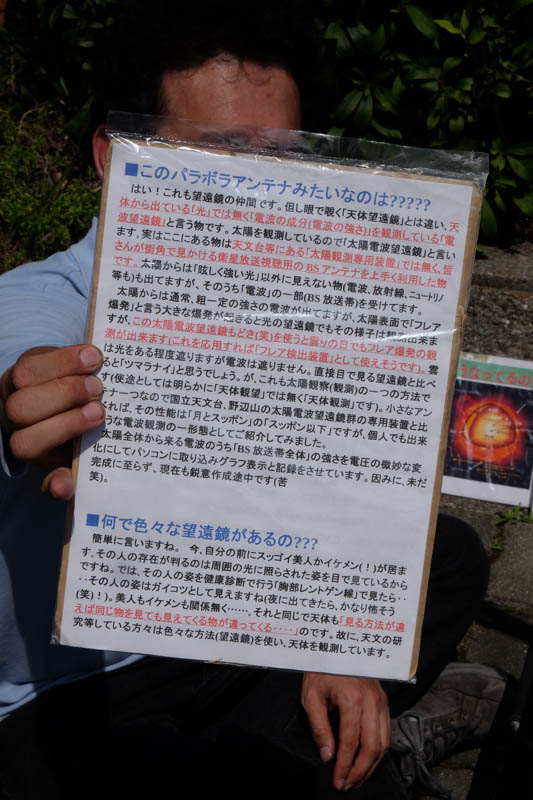 ■このパラボラアンテナみたいなのは?????
はい!これも望遠鏡の仲間です。但し眼で覗く「天体望遠鏡」とは違い、天
体から出ている「光」では無く「電波の成分(電波の強さ)を観測している「電
波望遠鏡」と言う物です。太陽を観測しているので「太陽電波望遠鏡」と言い
ます。実はここにある物は天文台等にある「太陽観測専用装置」では無く、皆
さんが街角で見かける衛星放送視聴用のBSアンテナを上手く利用した物
です。太陽からは「眩しく強い光」以外に見えない物(電波、放射線、ニュートリノ
等も)も出てますが、そのうち「電波」の一部(BS放送帯)を受けてます。
太陽からは通常、粗一定の強さの電波が出てますが、太陽表面で「フレア
爆発」と言う大きな爆発が起きると光の望遠鏡でもその様子は観測出来ま
すが、この太陽電波望遠鏡もどき(笑)を使うと曇りの日でもフレア爆発の観
測が出来ます(これを応用すれば「フレア検出装置」として使えそうです)。雲
は光をある程度遮りますが電波は遮りません。直接目で見る望遠鏡と比べ
ると「ツマラナイ」と思うでしょう。が、これも太陽観察(観測)の一つの方法で
す(使途としては明らかに「天体観望」では無く「天体観測」です)。小さなアン
テナ一つなので国立天文台、野辺山の太陽電波望遠鏡群の専用装置と比
べれば、その性能は「月とスッポン」の「スッポン以下」ですが、個人でも出来
うな電波観測の一形態としてご紹介してみました。
太陽全体から来る電波のうち「BS放送帯全体」の強さを電圧の微妙な変
化にしてパソコンに取り込みグラフ表示と記録をさせています。因みに、未だ
完成に至らず、現在も鋭意作成途中です(苦
笑)。
■何で色々な望遠鏡があるの???
簡単に言いますね。 今、自分の前にスッゴイ美人かイケメン(!)が居ま
す。その人の存在が判るのは周囲の光に照らされた姿を目で見ているから
ですね。では、その人の姿を健康診断で行う「胸部レントゲン線」で見たら・・
・・その人の姿はガイコツとして見えますね(夜に出てきたら、かなり怖そう
(笑)!)。美人もイケメンも関係無く……、それと同じで天体も「見る方法が違
えば同じ物を見ても見えてくる物が違ってくる・・・・」のです。故に、天文の研
究等している方々は色々な方法(望遠鏡)を使い、天体を観測しています。
なってるの